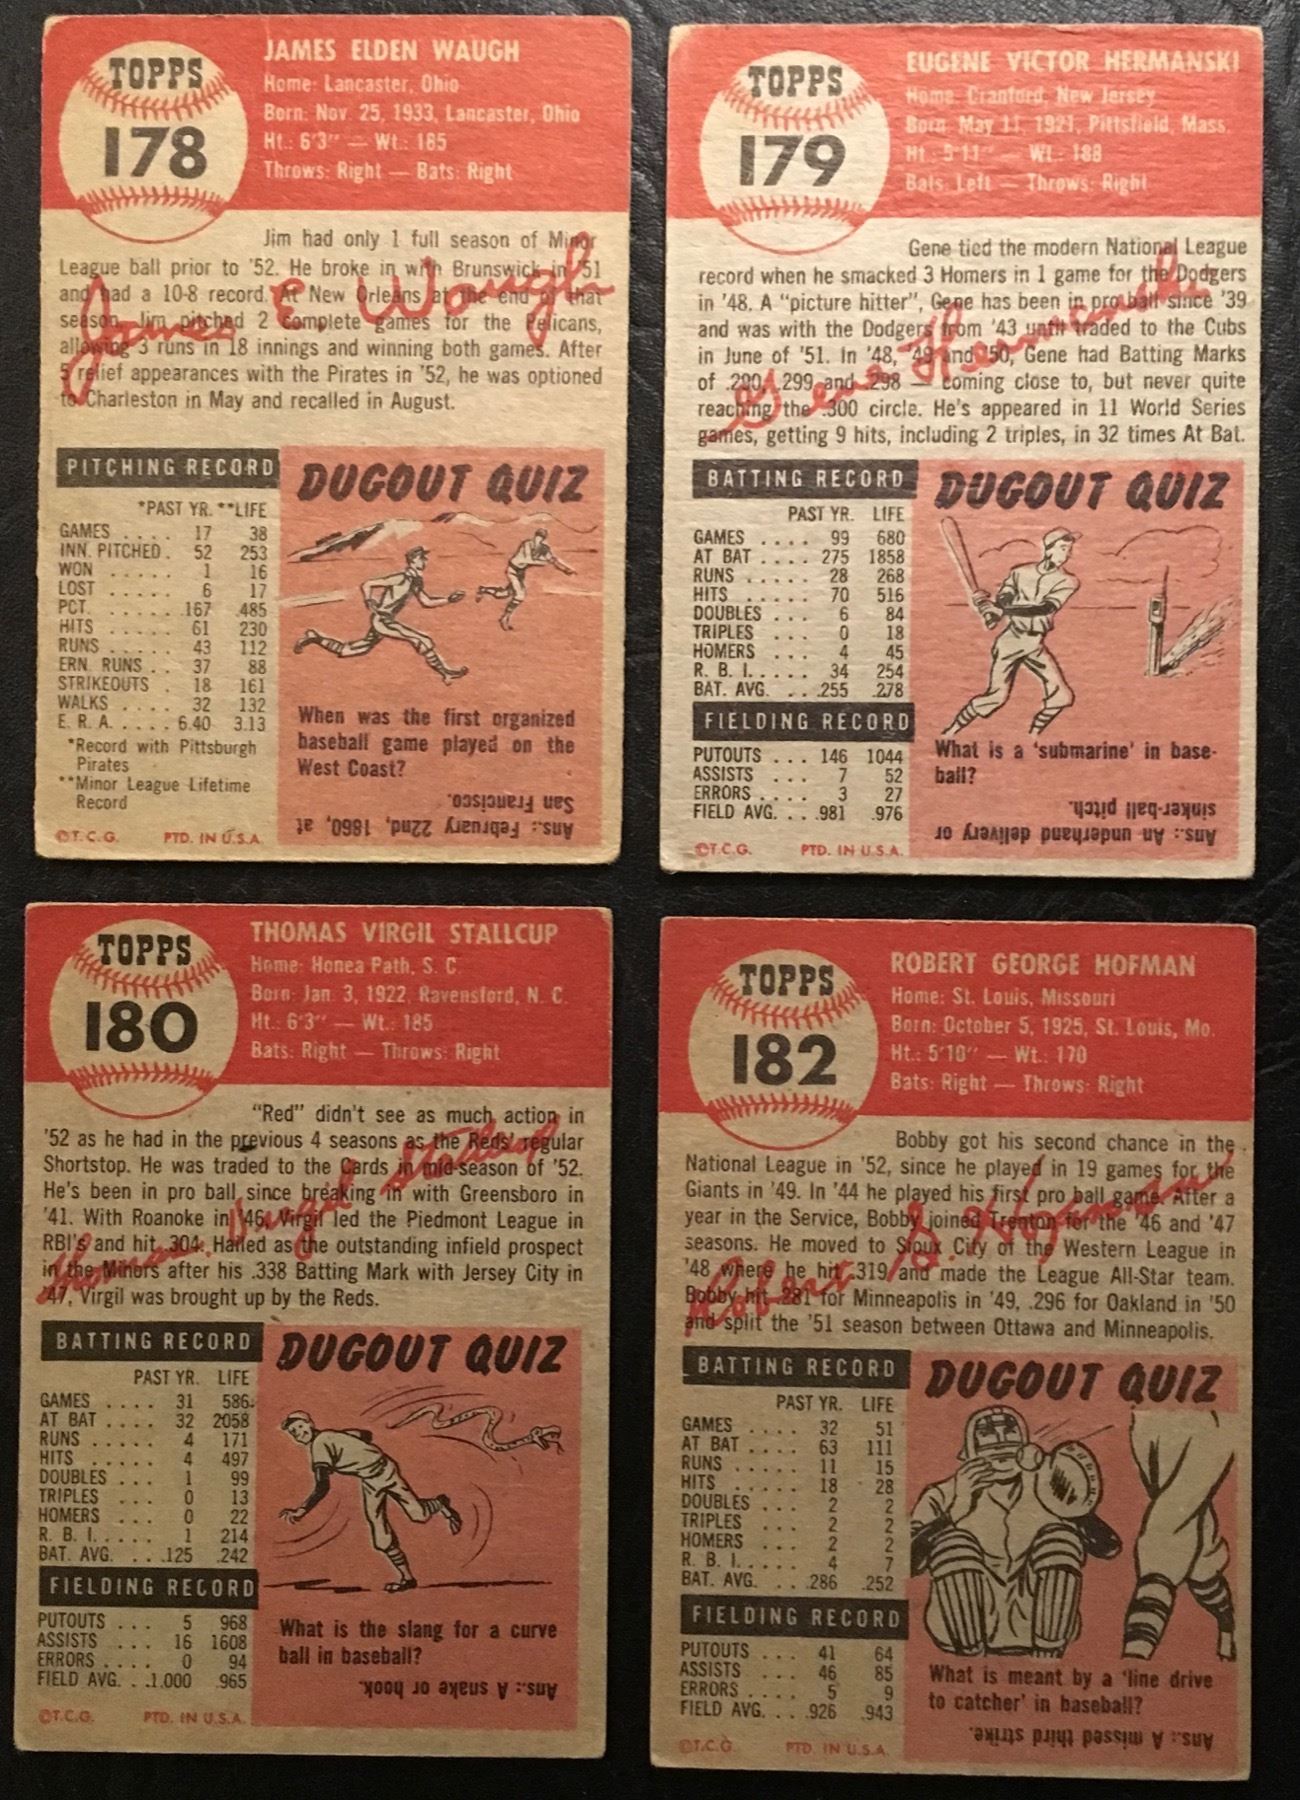 TOPPS
178
JAMES ELDEN WAUGH
Home: Lancaster, Ohio
Born: Nov. 25, 1933, Lancaster, Ohio
Ht.: 6'3" — Wt.: 185
Throws: Right — Bats: Right
Jim had only 1 full season of Minor
League ball prior to '52. He broke in with Brunswick in '51
and had a 10-8 record. At New Orleans at the end of that
season, Jim pitched 2 complete games for the Pelicans,
allowing 3 runs in 18 innings and winning both games. After
5 relief appearances with the Pirates in '52, he was optioned
to Charleston in May and recalled in August.
James E. Waugh
PITCHING RECORD
*PAST YR. **LIFE
GAMES . . . . . 17 38
INN. PITCHED . 52 253
WON . . . . . . 1 16
LOST . . . . . . 6 17
PCT. . . . . . .167 .485
HITS . . . . . . 61 230
RUNS . . . . . . 43 112
ERN. RUNS . . . 37 88
STRIKEOUTS . 18 161
WALKS . . . . . 32 132
E. R. A. . . . . . 6.40 3.13
*Record with Pittsburgh
Pirates
**Minor League Lifetime
Record
©T.C.G. PTD. IN U.S.A.
DUGOUT QUIZ
When was the first organized
baseball game played on the
West Coast?
Ans.: February 22nd, 1860, at
San Francisco.
TOPPS
179
EUGENE VICTOR HERMANSKI
Home: Cranford, New Jersey
Born: May 11, 1921, Pittsfield, Mass.
Ht.: 5'11" — Wt.: 188
Bats: Left — Throws: Right
Gene tied the modern National League
record when he smacked 3 Homers in 1 game for the Dodgers
in '48. A "picture hitter", Gene has been in pro ball since '39
and was with the Dodgers from '43 until traded to the Cubs
in June of '51. In '48, '49 and '50, Gene had Batting Marks
of .290, .299 and .298 — coming close to, but never quite
reaching the .300 circle. He's appeared in 11 World Series
games, getting 9 hits, including 2 triples, in 32 times At Bat.
Gene Hermanski
BATTING RECORD
PAST YR. LIFE
GAMES . . . . 99 680
AT BAT . . . . 275 1858
RUNS . . . . . 28 268
HITS . . . . . 70 516
DOUBLES . . . 6 84
TRIPLES . . . 0 18
HOMERS . . . 4 45
R. B. I. . . . . . 34 254
BAT. AVG. . . .255 .278
FIELDING RECORD
PUTOUTS . . . 146 1044
ASSISTS . . . . 7 52
ERRORS . . . . 3 27
FIELD AVG. . . . .981 .976
©T.C.G. PTD. IN U.S.A.
DUGOUT QUIZ
What is a 'submarine' in base-
ball?
Ans.: An underhand delivery or
sinker-ball pitch.
TOPPS
180
THOMAS VIRGIL STALLCUP
Home: Honea Path, S. C.
Born: Jan. 3, 1922, Ravensford, N. C.
Ht.: 6'3" — Wt.: 185
Bats: Right — Throws: Right
"Red" didn't see as much action in
'52 as he had in the previous 4 seasons as the Reds' regular
Shortstop. He was traded to the Cards in mid-season of '52.
He's been in pro ball since breaking in with Greensboro in
'41. With Roanoke in '46, Virgil led the Piedmont League in
RBI's and hit .304. Hailed as the outstanding infield prospect
in the Minors after his .338 Batting Mark with Jersey City in
'47, Virgil was brought up by the Reds.
Thomas Virgil Stallcup
BATTING RECORD
PAST YR. LIFE
GAMES . . . . 31 586
AT BAT . . . . 32 2058
RUNS . . . . . 4 171
HITS . . . . . 4 497
DOUBLES . . . 1 99
TRIPLES . . . 0 13
HOMERS . . . 0 22
R. B. I. . . . . . 1 214
BAT. AVG. . . .125 .242
FIELDING RECORD
PUTOUTS . . . 5 968
ASSISTS . . . 16 1608
ERRORS . . . . 0 94
FIELD AVG. . . 1.000 .965
©T.C.G. PTD. IN U.S.A.
DUGOUT QUIZ
What is the slang for a curve
ball in baseball?
Ans.: A snake or hook.
TOPPS
182
ROBERT GEORGE HOFMAN
Home: St. Louis, Missouri
Born: October 5, 1925, St. Louis, Mo.
Ht.: 5'10" — Wt.: 170
Bats: Right — Throws: Right
Bobby got his second chance in the
National League in '52, since he played in 19 games for the
Giants in '49. In '44 he played his first pro ball game. After a
year in the Service, Bobby joined Trenton for the '46 and '47
seasons. He moved to Sioux City of the Western League in
'48 where he hit .319 and made the League All-Star team.
Bobby hit .281 for Minneapolis in '49, .296 for Oakland in '50
and split the '51 season between Ottawa and Minneapolis.
Robert G. Hofman
BATTING RECORD
PAST YR. LIFE
GAMES . . . . 32 51
AT BAT . . . . 63 111
RUNS . . . . . 11 15
HITS . . . . . 18 28
DOUBLES . . . 2 2
TRIPLES . . . 2 2
HOMERS . . . 2 2
R. B. I. . . . . . 4 7
BAT. AVG. . . .286 .252
FIELDING RECORD
PUTOUTS . . . 41 64
ASSISTS . . . . 46 85
ERRORS . . . . 5 9
FIELD AVG. . . . .926 .943
©T.C.G. PTD. IN U.S.A.
DUGOUT QUIZ
What is meant by a 'line drive
to catcher' in baseball?
Ans.: A missed third strike.